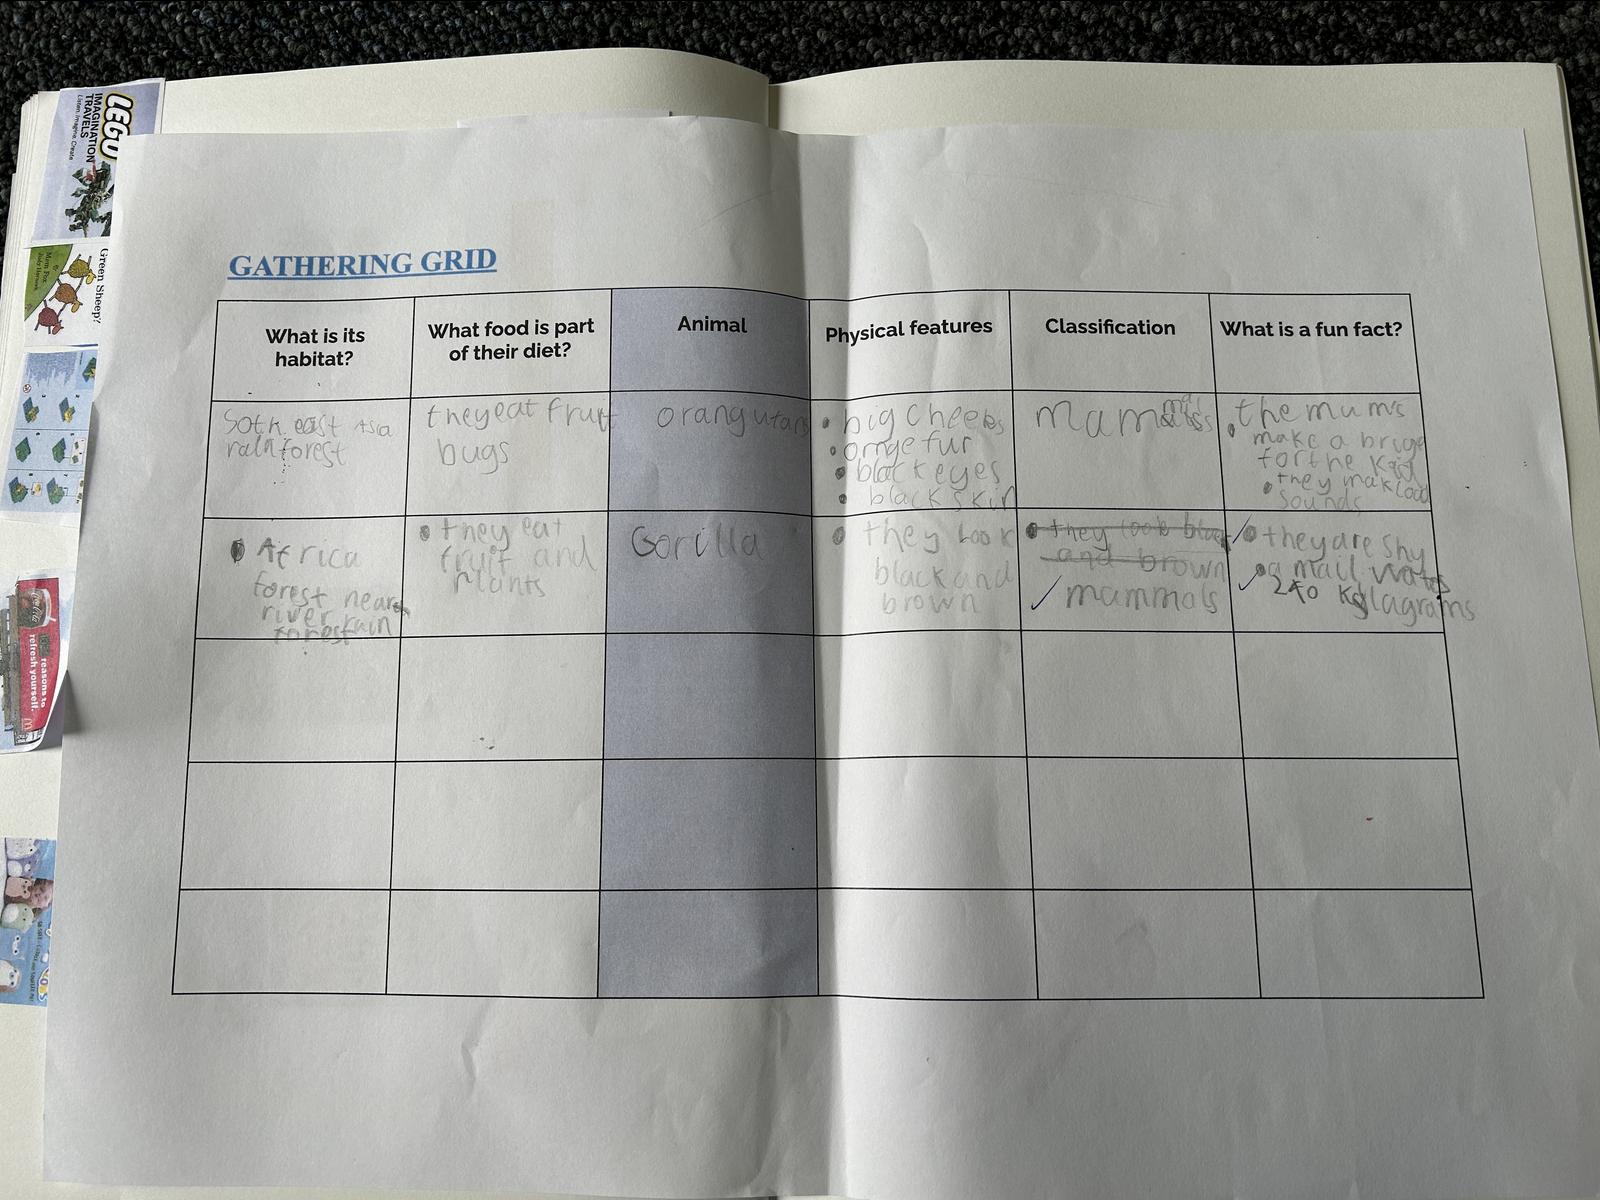 LEGO
IMAGINATION
TRAVELS
Listen. Imagine. Create
Green Sheep?
Mem Fox
Judy Horacek
reasons to
refresh yourself.
GATHERING GRID
What is its
habitat?
What food is part
of their diet?
Animal
Physical features
Classification
What is a fun fact?
Soth east Asia
rainforest
they eat fruit
bugs
orangutans
big cheeks
ornge fur
black eyes
black skin
mamals
the mums
make a brige
for the kid
they mak load
sounds
Africa
forest near
river rain
forest
they eat
fruit and
Plants
Gorilla
they look
black and
brown
they look black
and brown
mammals
they are shy
a mail wates
240 kglagrams